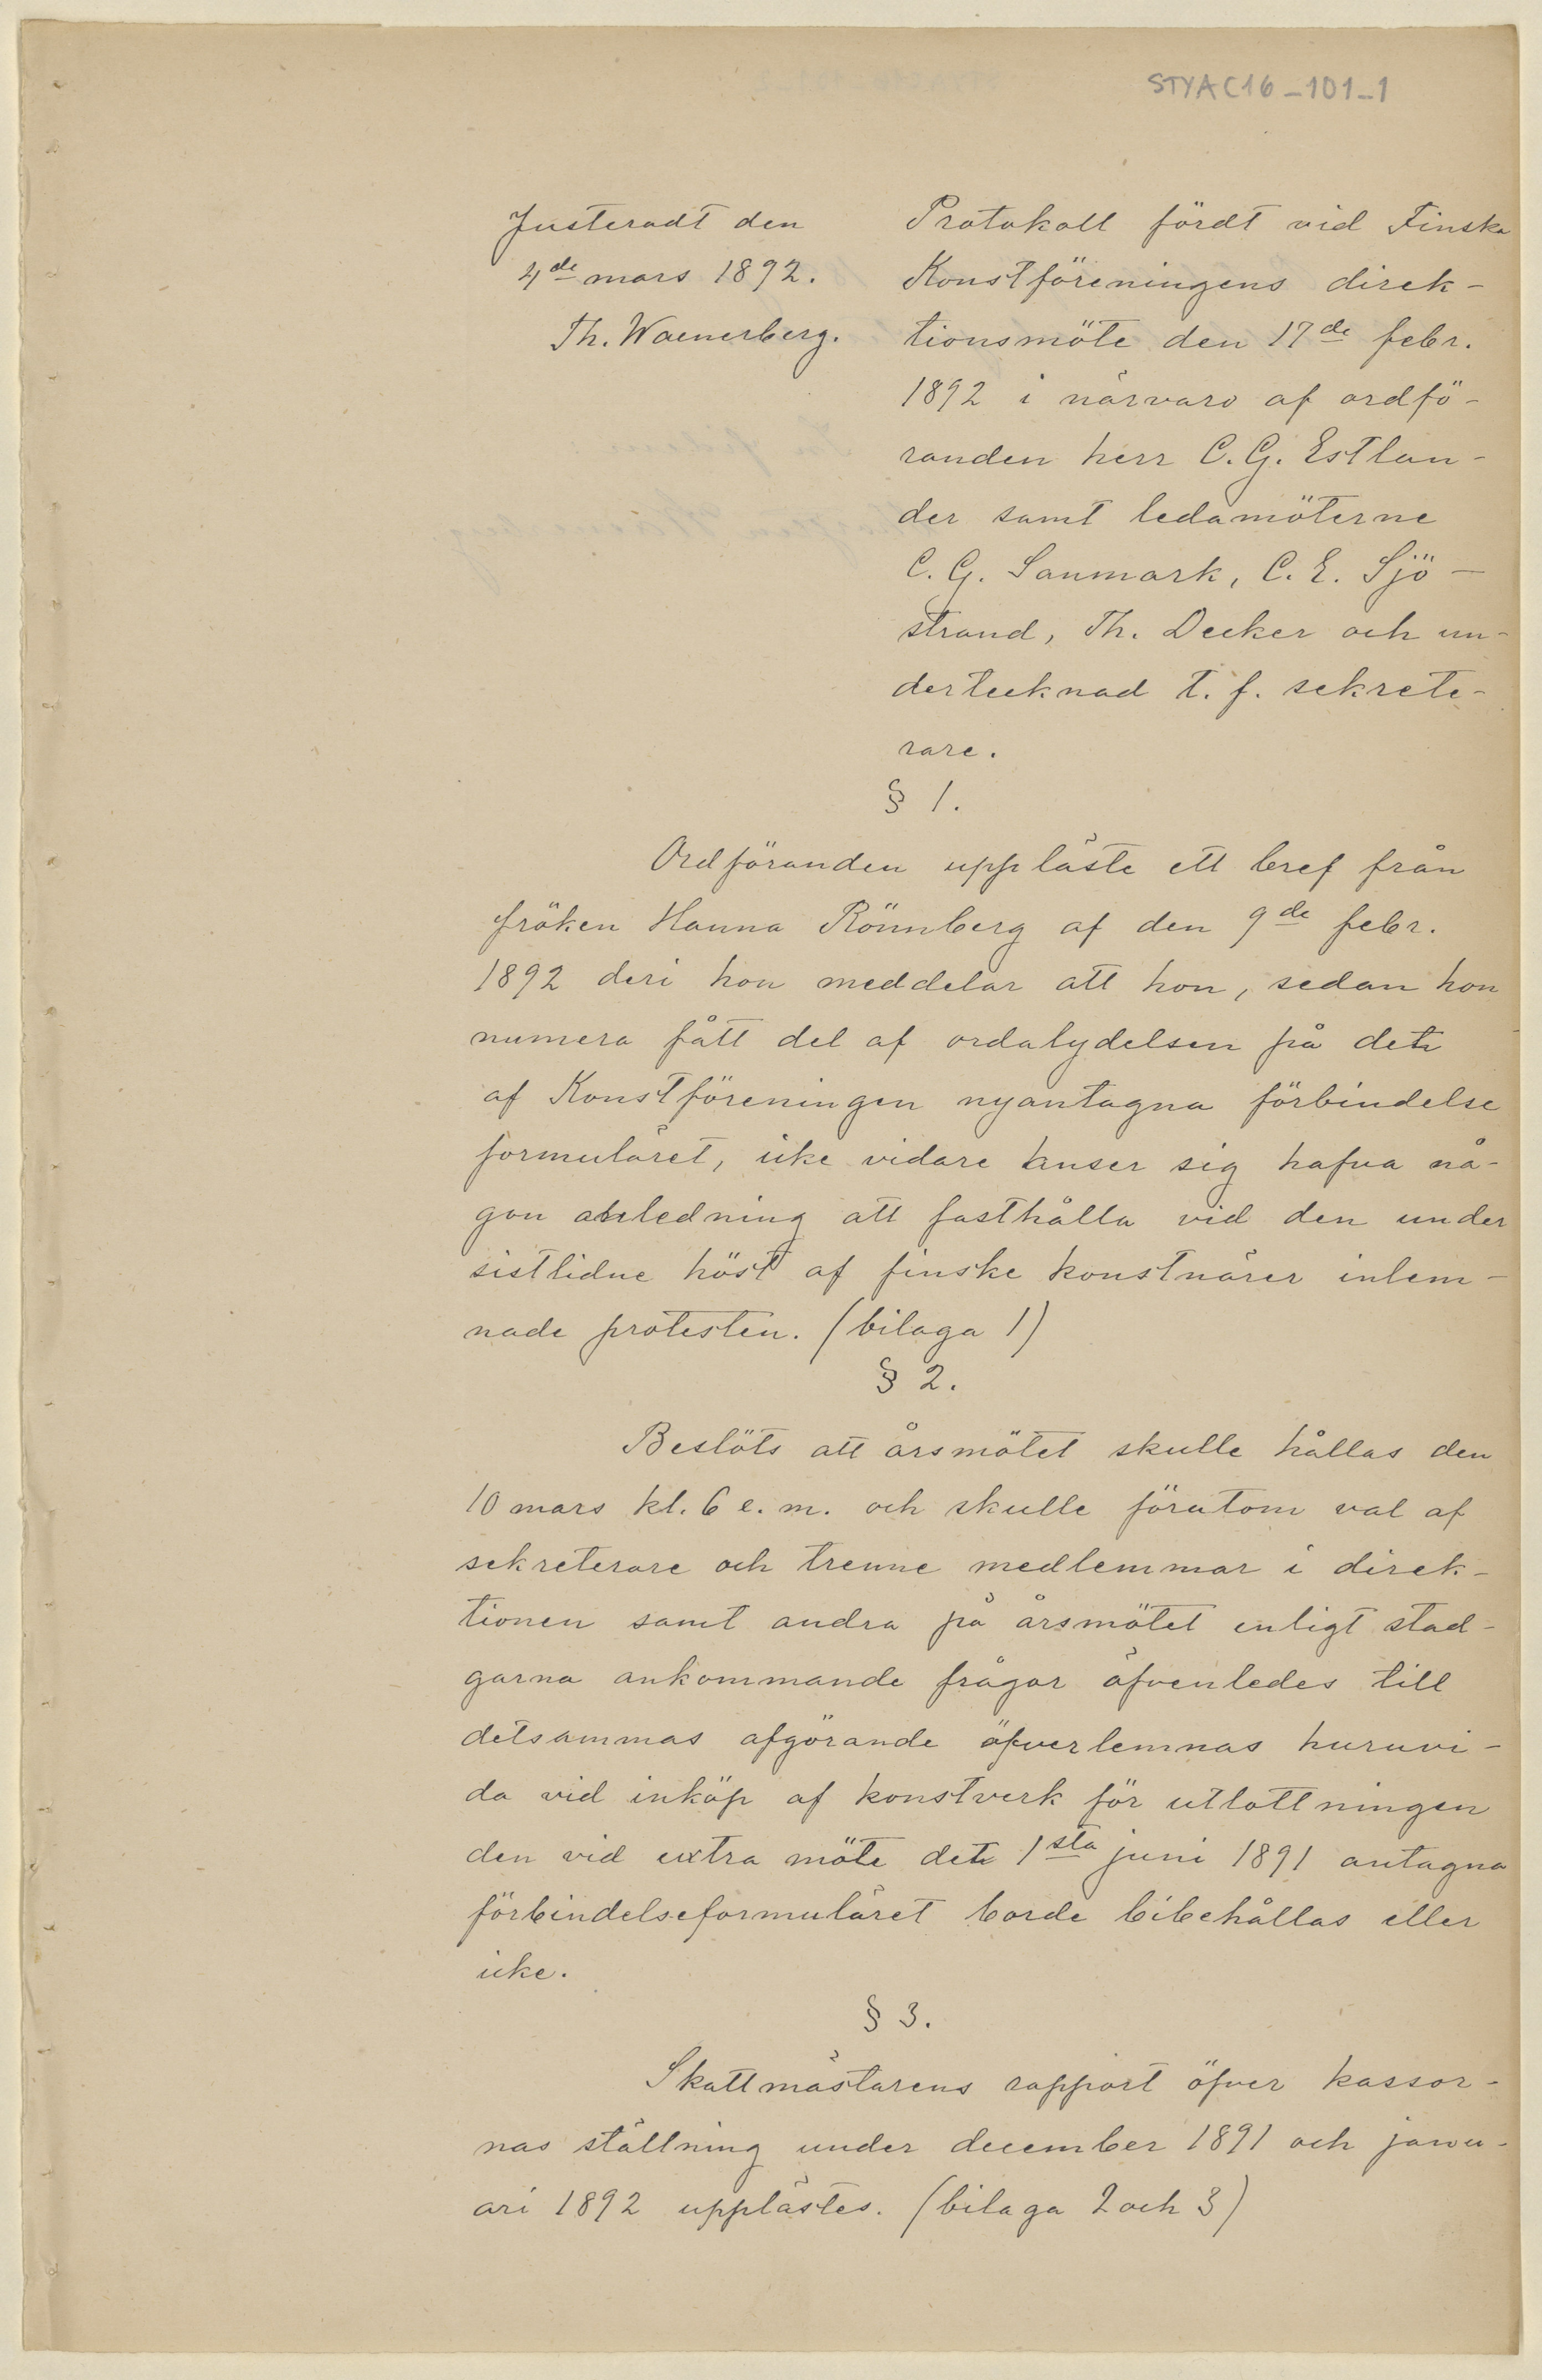 STYA C16 – 101 – 1
Justeradt den
4de mars 1892.
Th. Waenerberg.
Protokoll fördt vid Finska
Konstföreningens direk-
tionsmöte den 17de febr.
1892 i närvaro af ordfö-
randen herr C. G. Estlan-
der samt ledamöterne
C. G. Sanmark, C. E. Sjö-
strand, Th. Decker och un-
dertecknad t. f. sekrete-
rare.
§ 1.
Ordföranden uppläste ett bref från
fröken Hanna Rönnberg af den 9de febr.
1892 deri hon meddelar att hon, sedan hon
numera fått del af ordalydelsen på det
af Konstföreningen nyantagna förbindelse
formuläret, icke vidare anser sig hafva nå-
gon anledning att fasthålla vid den under
sistlidne höst af finske konstnärer inlem-
nade protesten. (bilaga 1)
§ 2.
Beslöts att årsmötet skulle hållas den
10 mars kl. 6 e. m. och skulle förutom val af
sekreterare och trenne medlemmar i direk-
tionen samt andra på årsmötet enligt stad-
garna ankommande frågor äfvenledes till
detsammas afgörande öfverlemnas huruvi-
da vid inköp af konstverk för utlottningen
den vid extra möte det 1sta juni 1891 antagna
förbindelseformuläret borde bibehållas eller
icke.
§ 3.
Skattmästarens rapport öfver kassor-
nas ställning under december 1891 och janu-
ari 1892 upplästes. (bilaga 2 och 3)